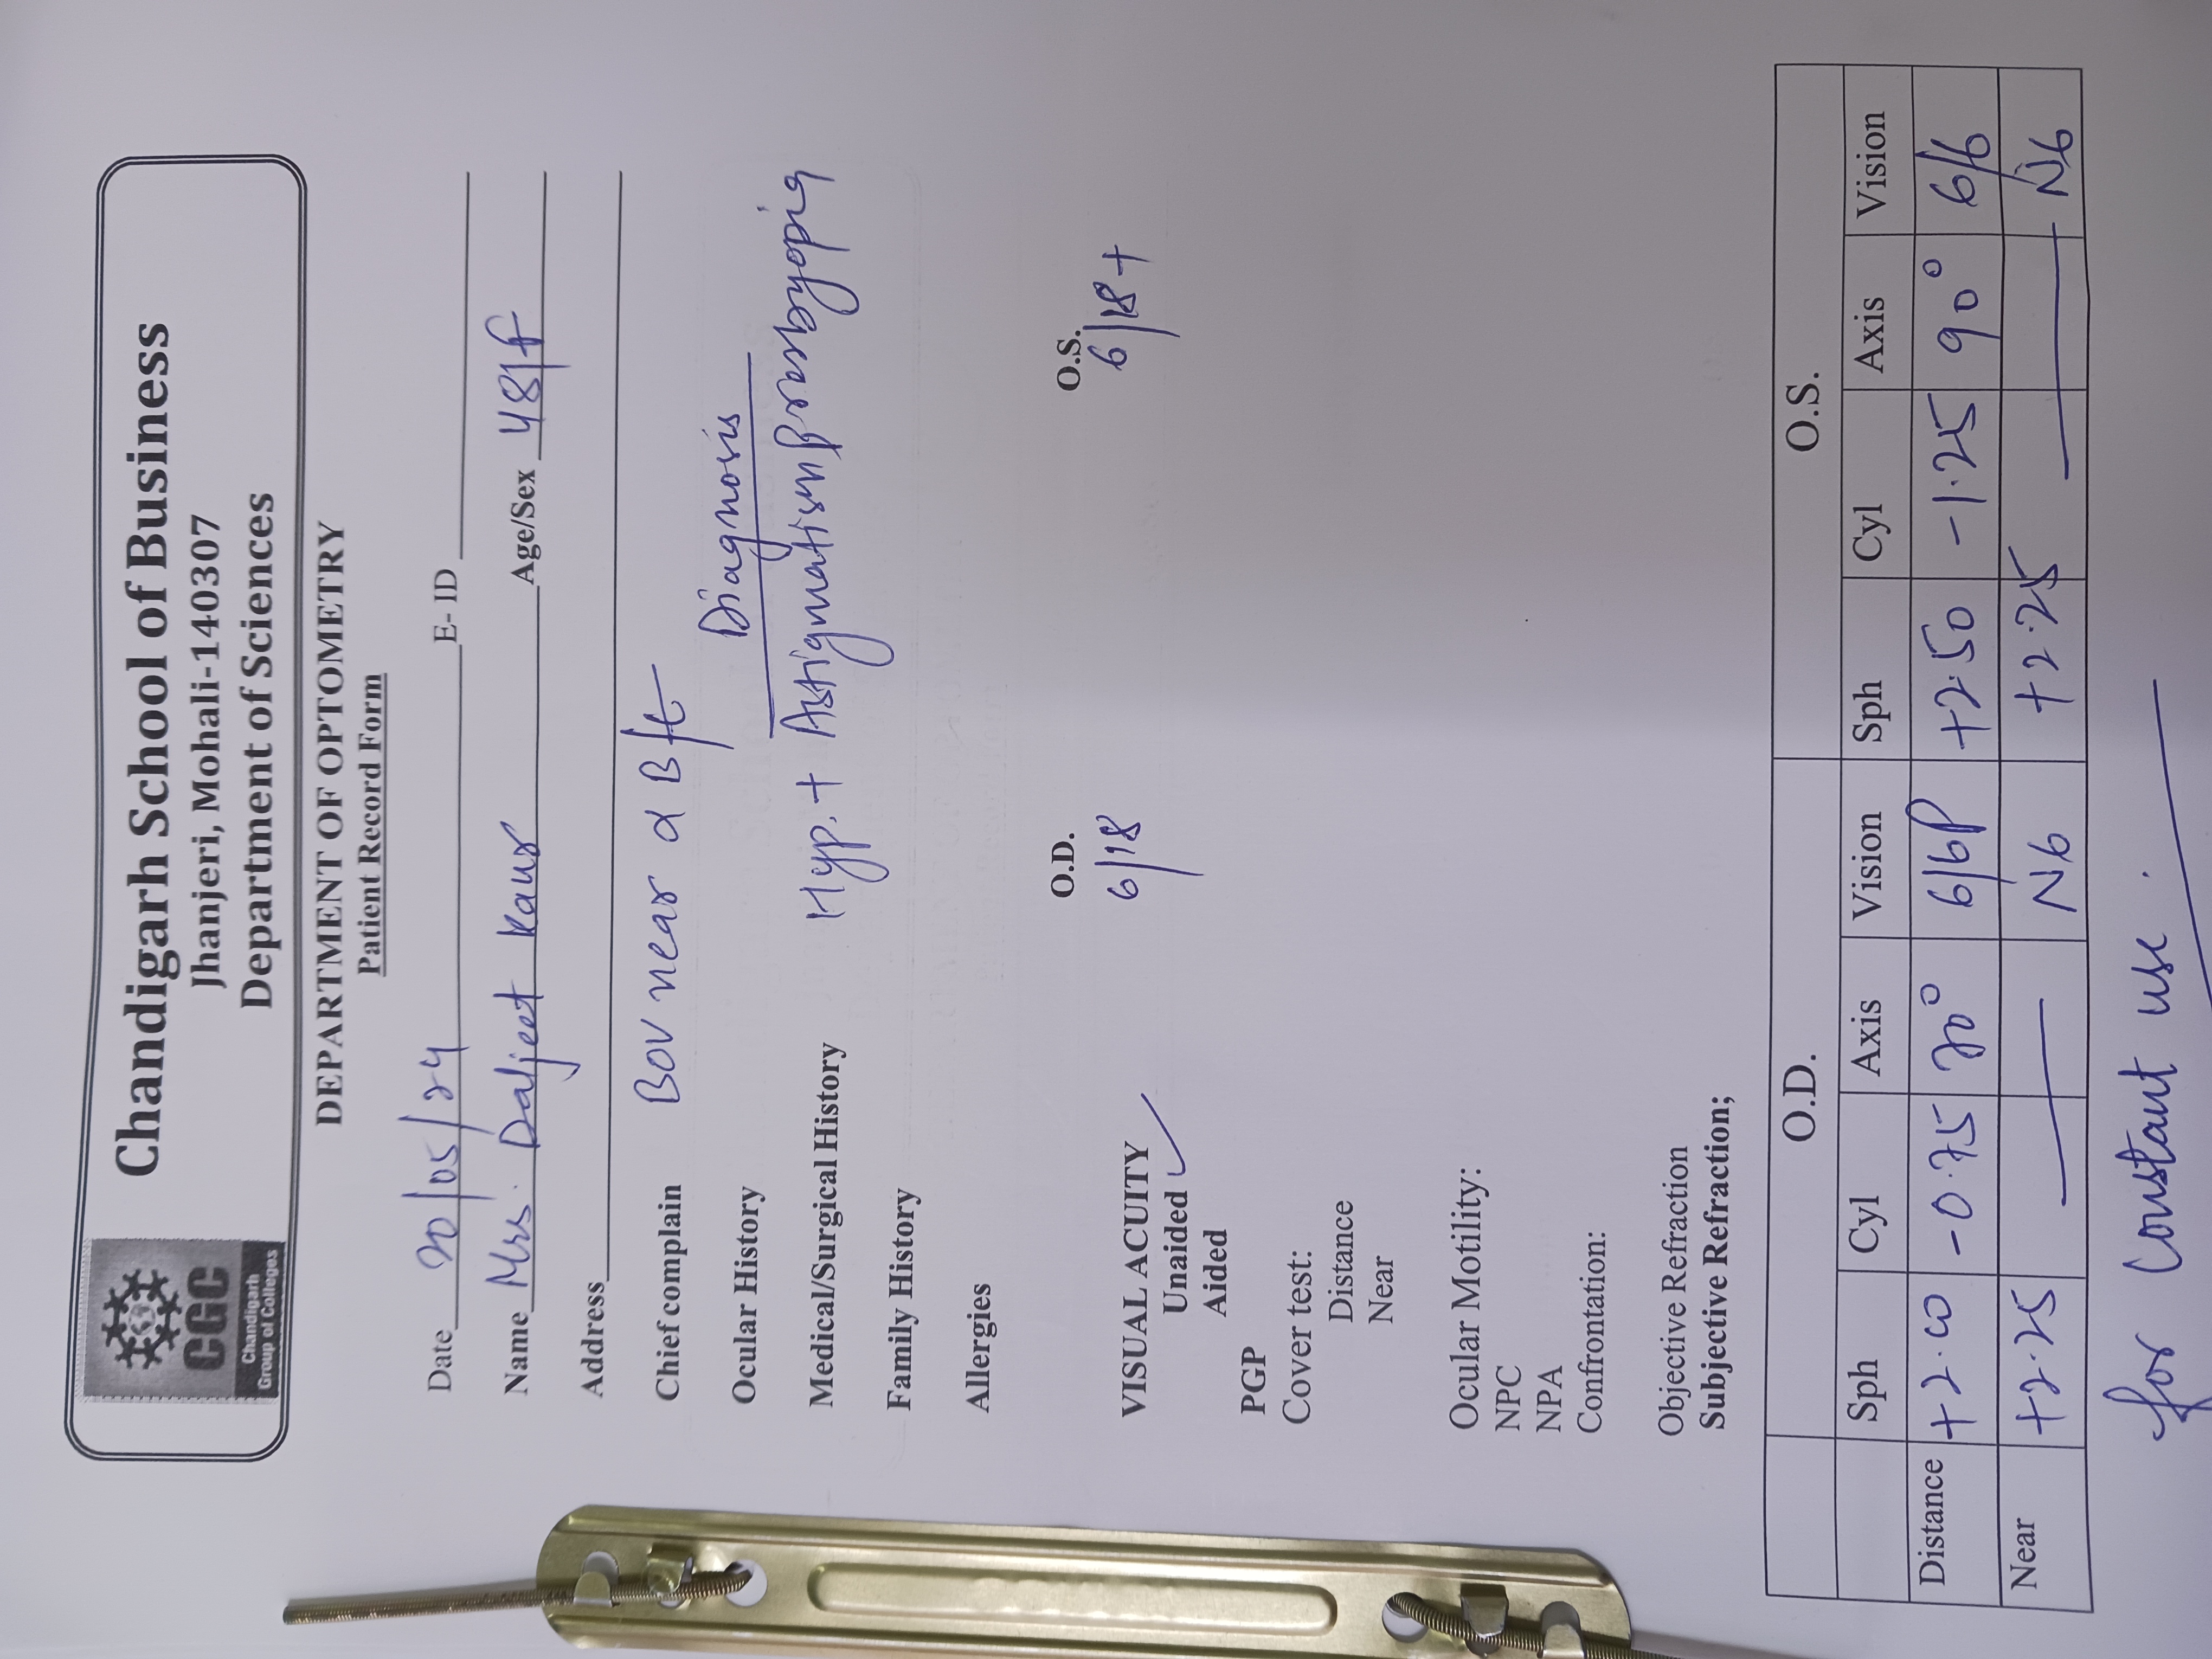 CGC
Chandigarh
Group of Colleges
Chandigarh School of Business
Jhanjeri, Mohali-140307
Department of Sciences
DEPARTMENT OF OPTOMETRY
Patient Record Form
Date 20/05/24 E- ID
Name Mrs. Daljeet Kaur Age/Sex 48/F
Address
Chief complain BOV near
Ocular History Diagnosis
Medical/Surgical History Hyp. + Astigmatism Presbyopia
Family History
Allergies
O.D. O.S.
VISUAL ACUITY 6/18 6/18+
Unaided ✓
Aided
PGP
Cover test:
Distance
Near
Ocular Motility:
NPC
NPA
Confrontation:
Objective Refraction
Subjective Refraction;
O.D. O.S.
Sph Cyl Axis Vision Sph Cyl Axis Vision
Distance +2.00 -0.75 6/6P +2.50 -1.25 90° 6/6
Near +2.25 — N6 +2.25 — N6
for constant use.